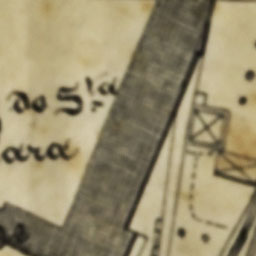 de S.ta
ara